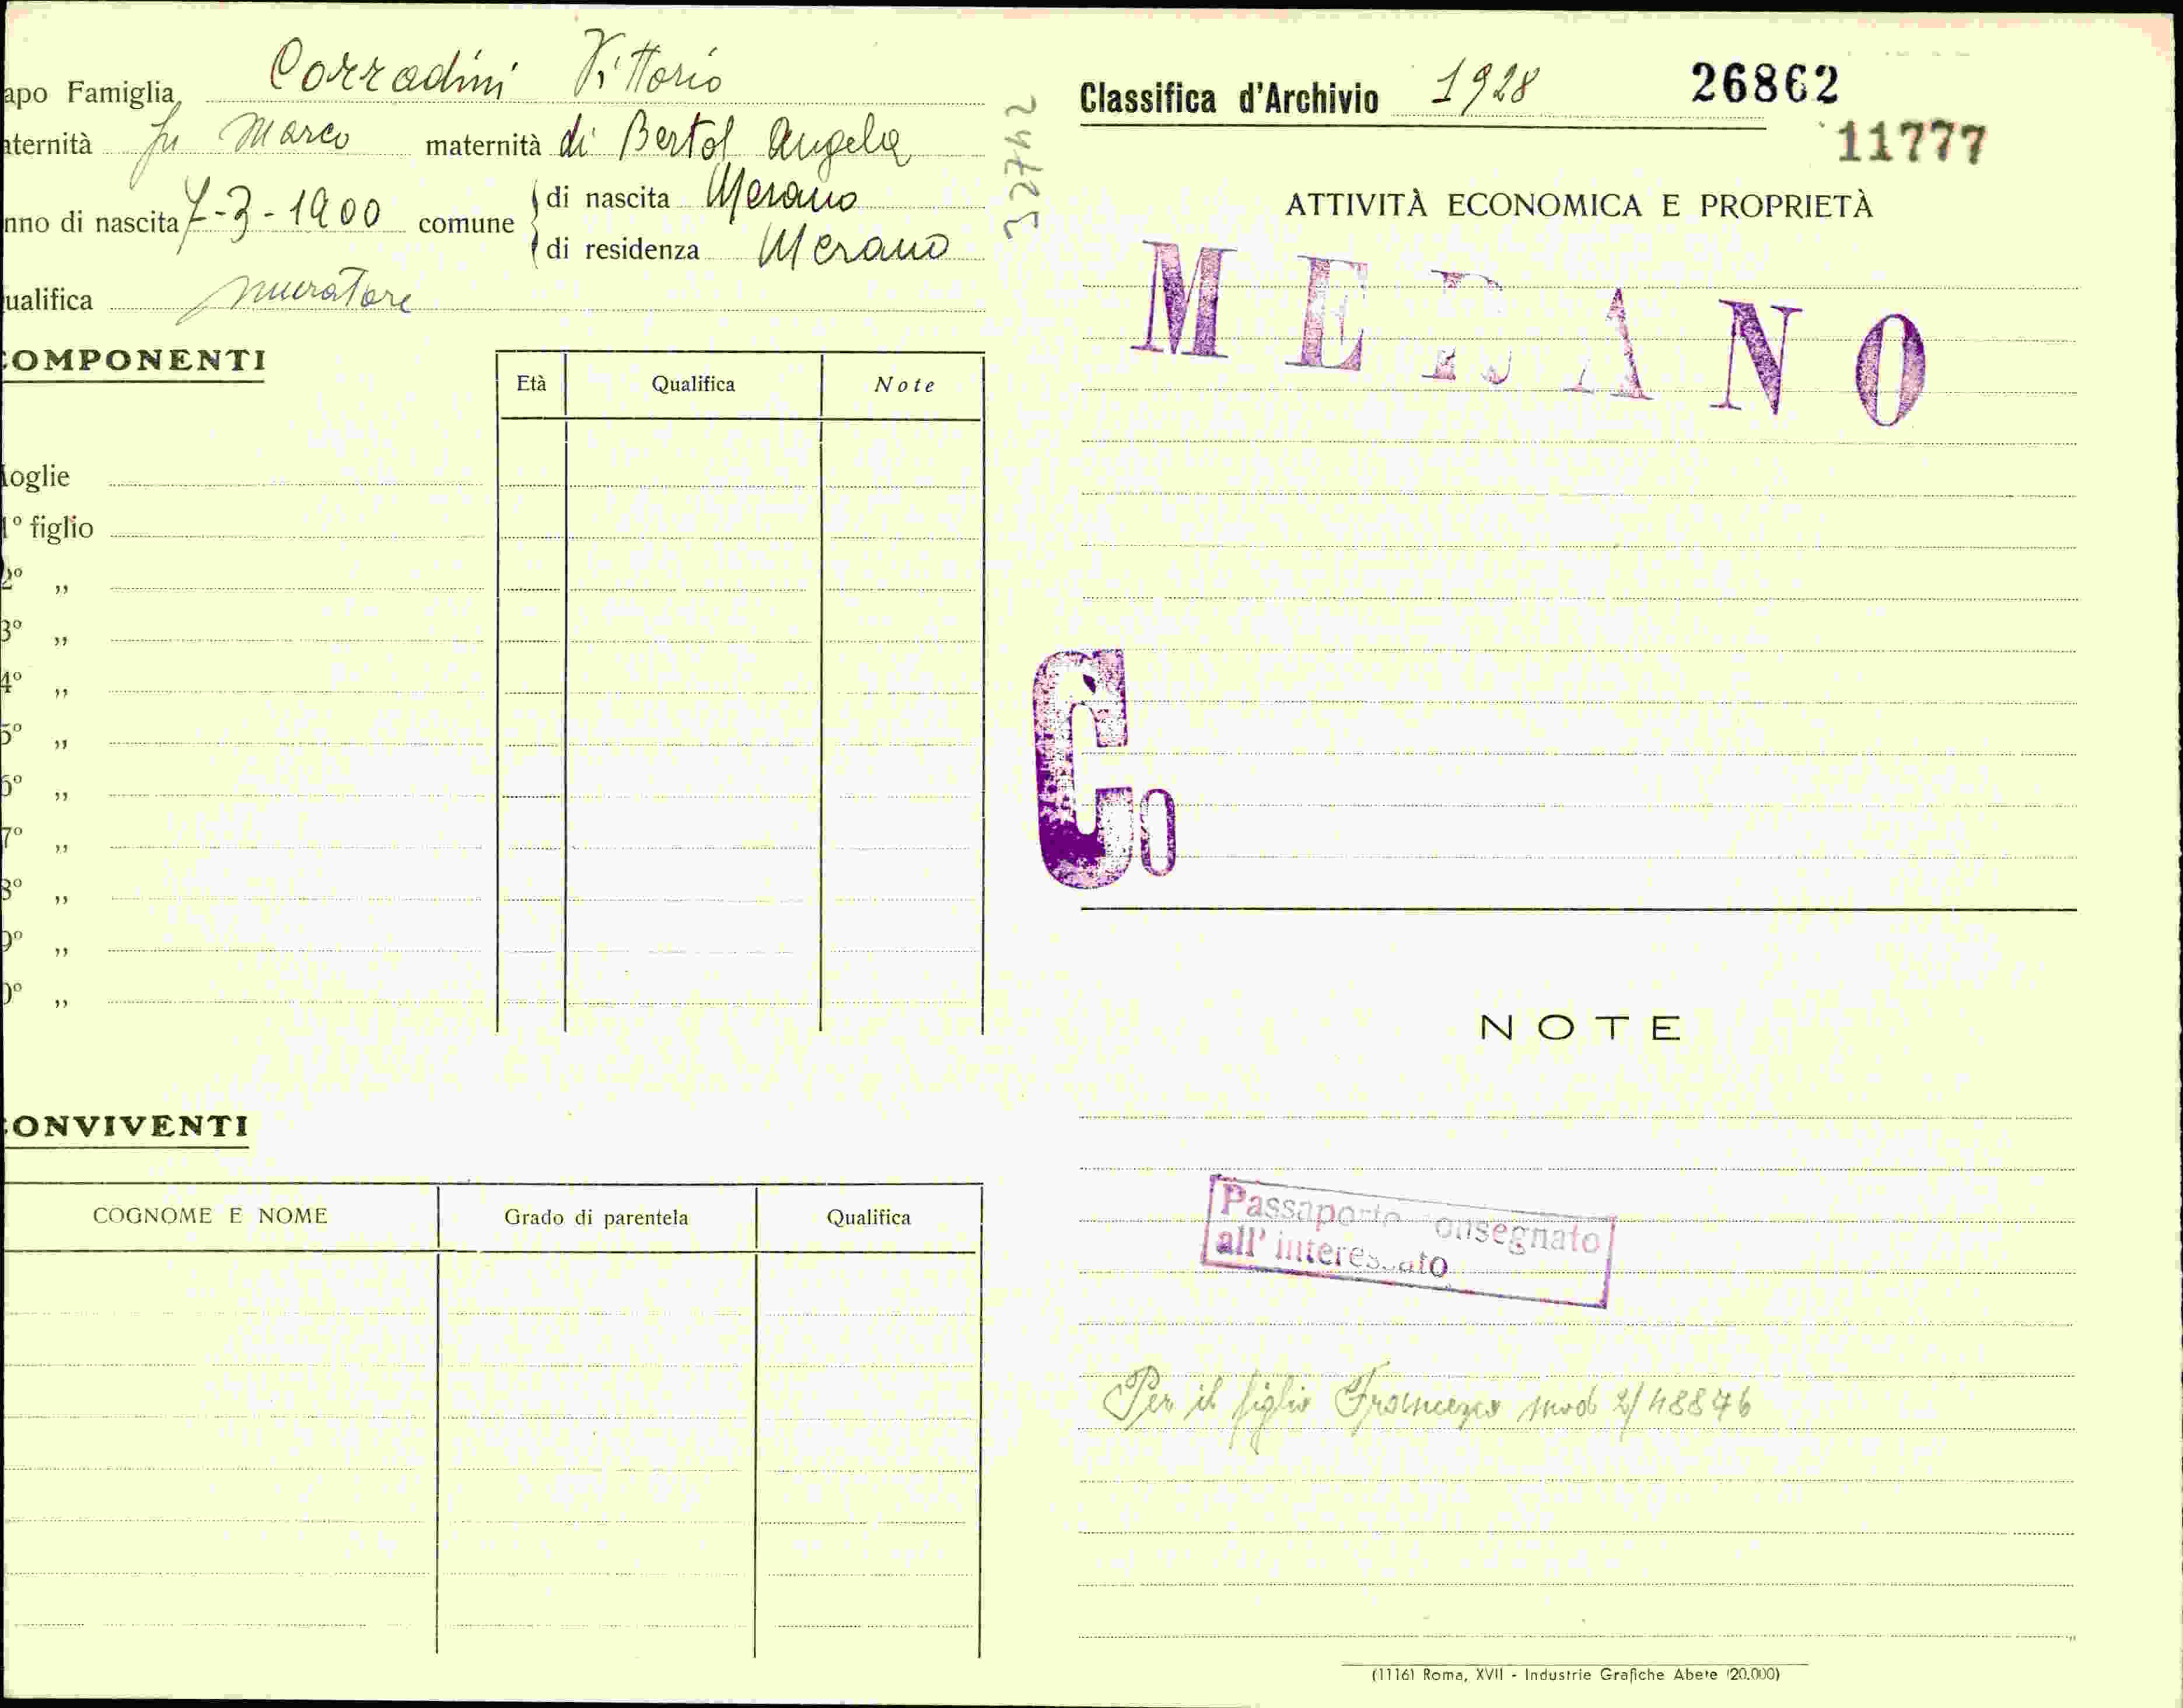 apo Famiglia Corradini Vittorio
aternità fu Marco maternità di Bertol Angela
nno di nascita 7-3-1900 comune di nascita Merano
di residenza Merano
ualifica muratore
COMPONENTI
Età Qualifica Note
loglie
1º figlio
2º ,,
3º ,,
4º ,,
5º ,,
6º ,,
7º ,,
8º ,,
9º ,,
0º ,,
CONVIVENTI
COGNOME E NOME Grado di parentela Qualifica
32742
Classifica d'Archivio 1928 26862
11777
ATTIVITÀ ECONOMICA E PROPRIETÀ
MERANO
Co
NOTE
Passaporto consegnato
all' interessato
Per il figlio Francesco mod 2/48876
(1116) Roma, XVII - Industrie Grafiche Abete (20.000)